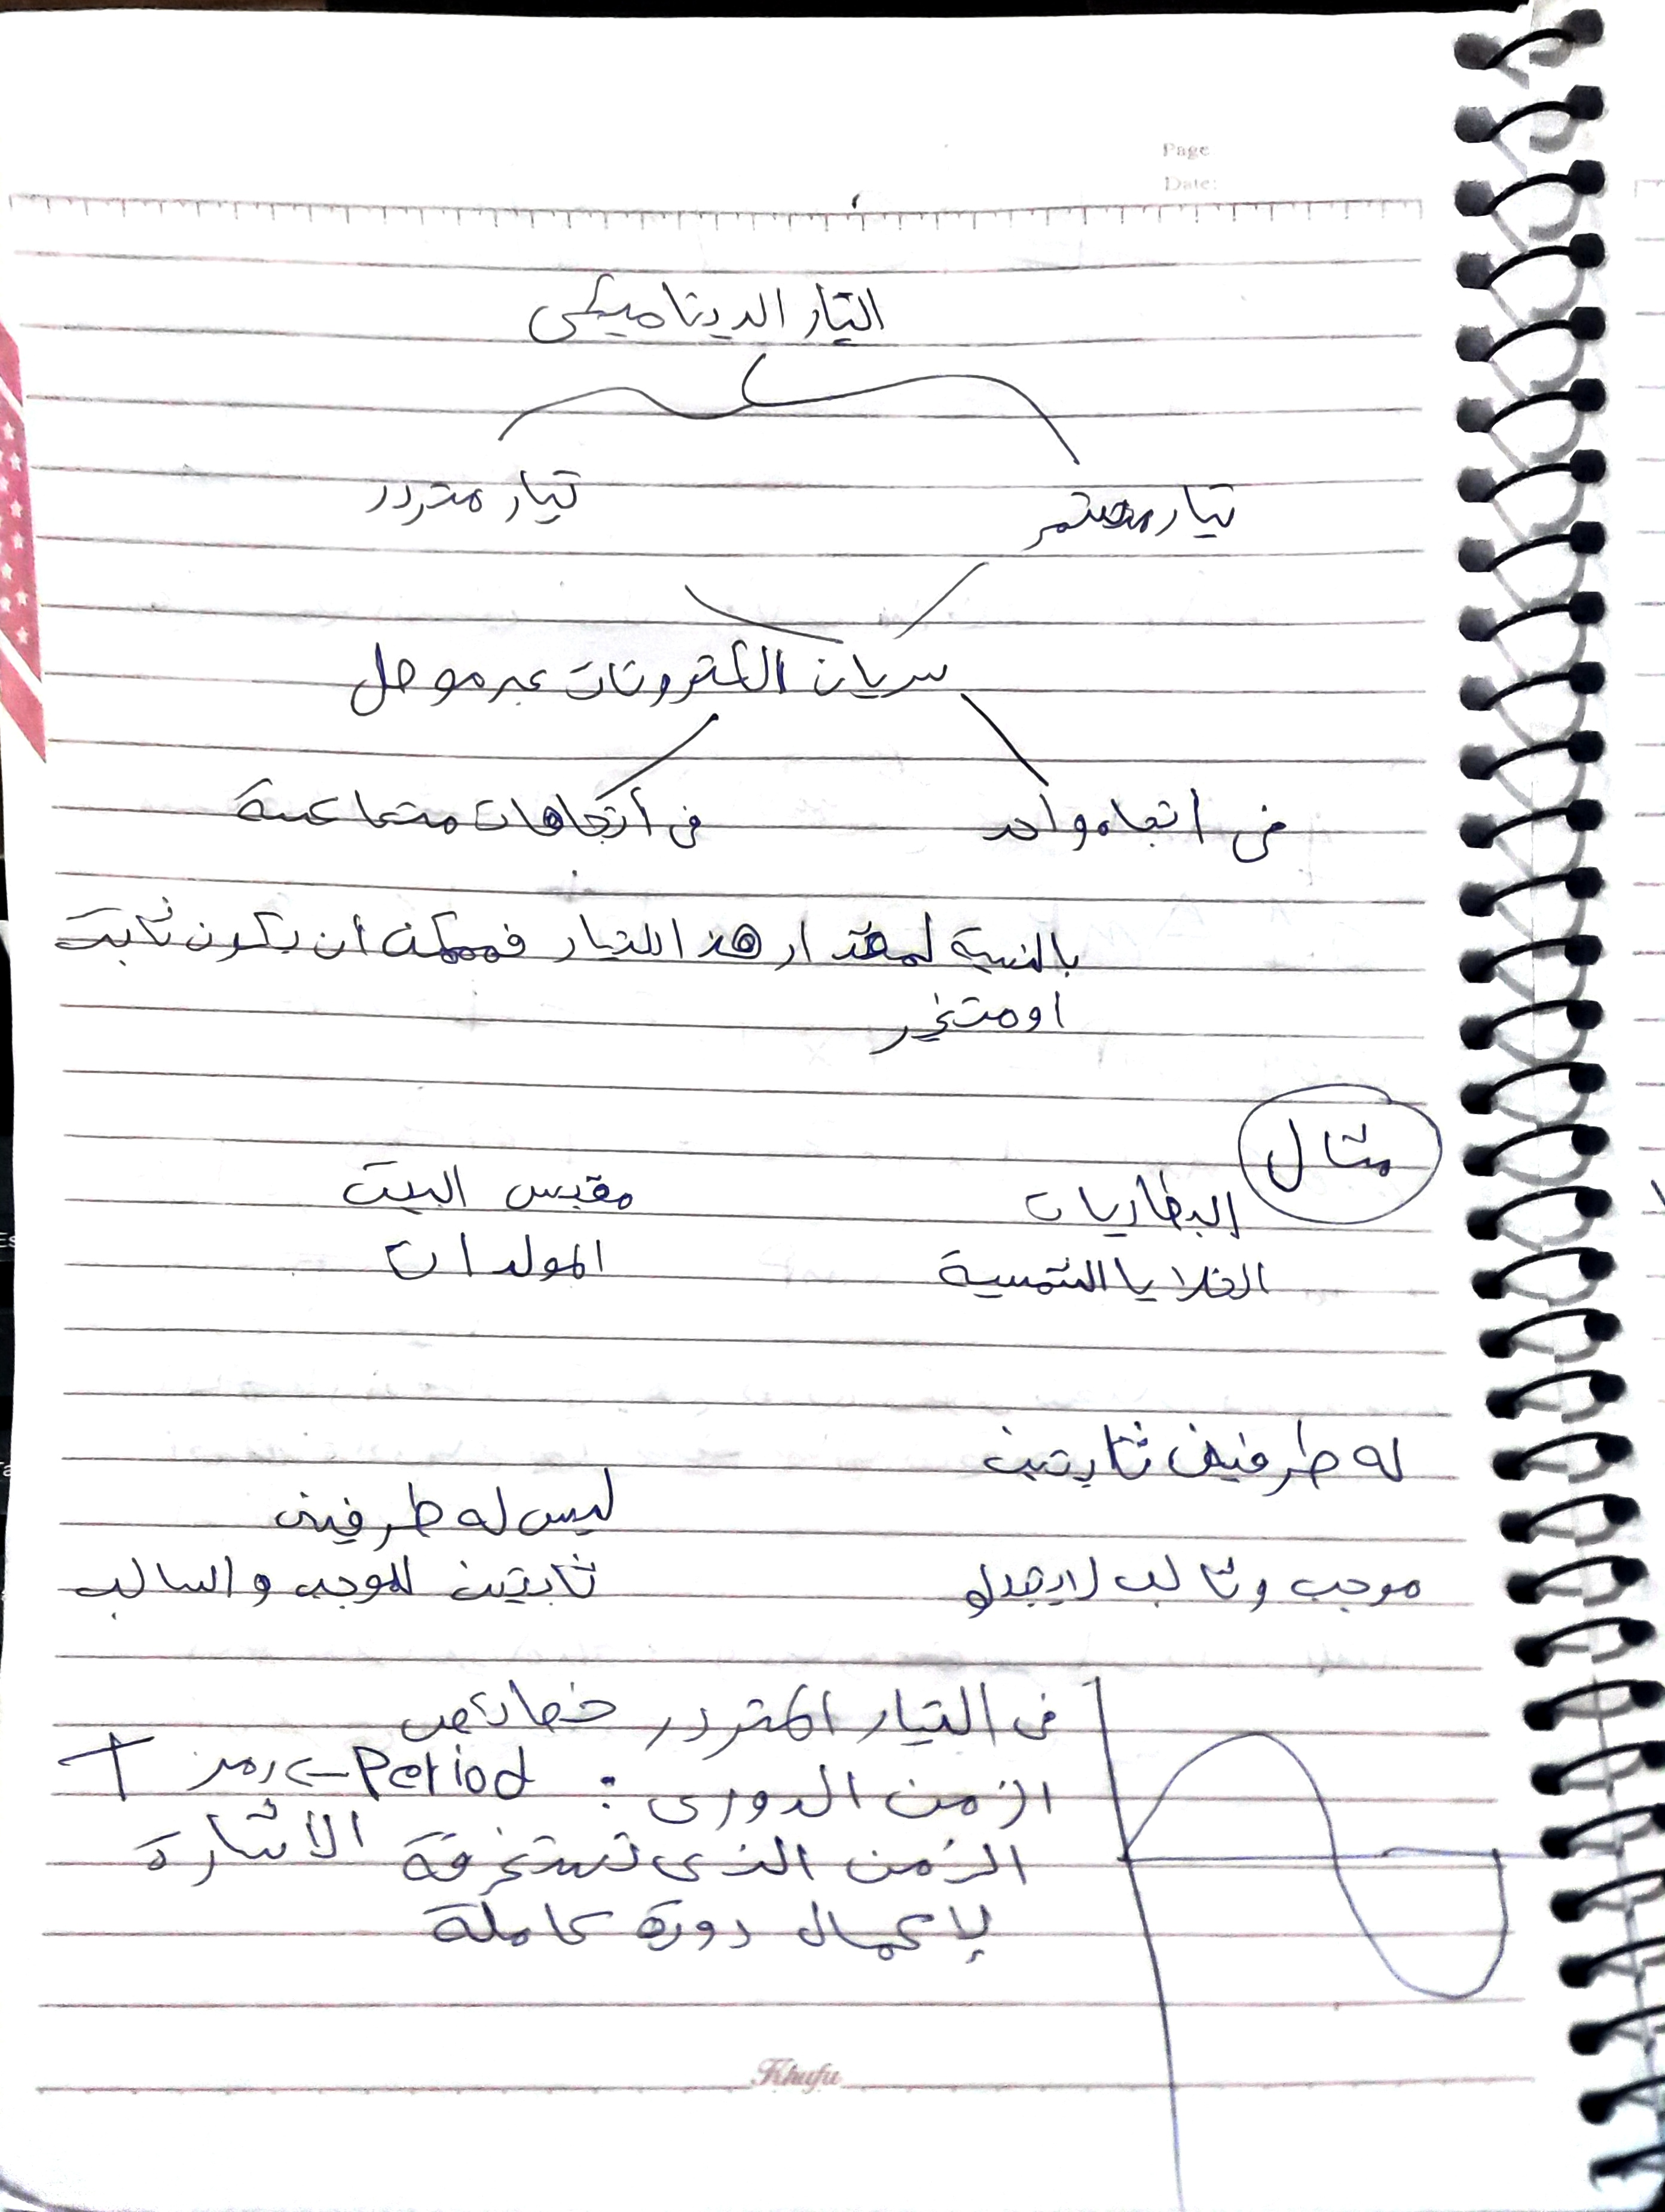 Page
Date:
التيار الديناميكى
تيار مستمر
تيار متردد
سريان الكترونات عبر موصل
فى اتجاه واحد
فى أتجاهات متعاكسة
بالنسبة لمقدار هذا التيار فممكن ان يكون ثابت
او متغير
مثال
البطاريات
مقبس البيت
الخلايا الشمسية
المولدات
له طرفين ثابتين
ليس له طرفين
موجب وثالب
ثابتين للموجب والسالب
فى التيار المتردد خصائص
الزمن الدورى : Period -> رمز T
الزمن الذى تستغرقة الاشارة
لإكمال دورة كاملة
Khufu